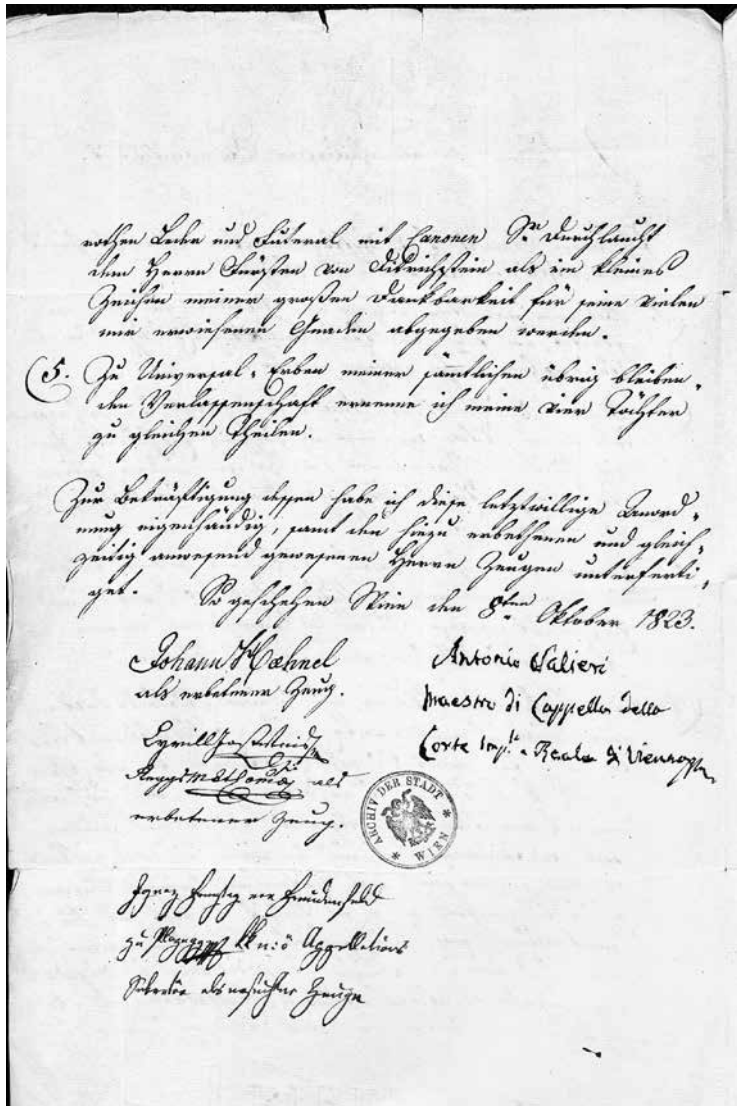 rothen Leder und Futeral mit Canonen Sr Durchlaucht
dem Herrn Fürsten von Ditrichstein als ein kleines
Zeichen meiner großen Dankbarkeit für seine vielen
mir erwiesenen Gnaden abgegeben werden.
5. Zu Universal-Erben meiner sämtlichen übrig bleiben-
den Verlassenschaft ernenne ich meine vier Töchter
zu gleichen Theilen.
Zur Bekräftigung dessen habe ich diese letztwillige Anord-
nung eigenhändig, samt den hiezu erbethenen und gleich-
zeitig anwesend gewesenen Herrn Zeugen unterferti-
get. So geschehen Wien den 8ten Oktober 1823.
Johann Haehnel
als erbetener Zeug.
Antonio Salieri
Maestro di Cappella della
Corte Imp.le Reale di Vienna
Cyrill
als
erbetener Zeug.
ARCHIV DER STADT * WIEN *
Ignaz von Freudenfeld
zu kk n:ö Appellations
Sekretär als ersuchter Zeuge